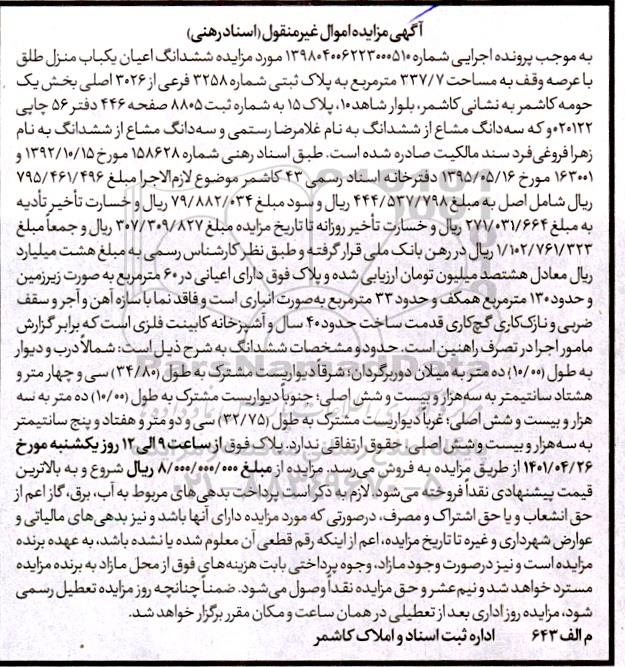 آگهی مزایده اموال غیرمنقول (اسناد رهنی)
به موجب پرونده اجرایی شماره ۱۳۹۸۰۴۰۰۶۲۲۳۰۰۰۵۱۰ مورد مزایده ششدانگ اعیان یکباب منزل طلق
با عرصه وقف به مساحت ۳۳۷/۷ مترمربع به پلاک ثبتی شماره ۳۲۵۸ فرعی از ۳۰۲۶ اصلی بخش یک
حومه کاشمر به نشانی کاشمر، بلوار شاهد ۱۰، پلاک ۱۵ به شماره ثبت ۸۸۰۵ صفحه ۴۴۶ دفتر ۵۶ چاپی
۰۲۰۱۲۲و که سه‌دانگ مشاع از ششدانگ به نام غلامرضا رستمی و سه‌دانگ مشاع از ششدانگ به نام
زهرا فروغی‌فرد سند مالکیت صادره شده است. طبق اسناد رهنی شماره ۱۵۸۶۲۸ مورخ ۱۳۹۲/۱۰/۱۵ و
۱۶۳۰۰۱ مورخ ۱۳۹۵/۰۵/۱۶ دفترخانه اسناد رسمی ۴۳ کاشمر موضوع لازم‌الاجرا مبلغ ۷۹۵/۴۶۱/۴۹۶
ریال شامل اصل به مبلغ ۴۴۴/۵۳۷/۷۹۸ ریال و سود مبلغ ۷۹/۸۸۲/۰۳۴ ریال و خسارت تأخیر تأدیه
به مبلغ ۲۷۱/۰۳۱/۶۶۴ ریال و خسارت تأخیر روزانه تا تاریخ مزایده مبلغ ۳۰۷/۳۰۹/۸۲۷ ریال و جمعاً مبلغ
۱/۱۰۲/۷۶۱/۳۲۳ ریال در رهن بانک ملی قرار گرفته و طبق نظر کارشناس رسمی به مبلغ هشت میلیارد
ریال معادل هشتصد میلیون تومان ارزیابی شده و پلاک فوق دارای اعیانی در ۶۰ مترمربع به صورت زیرزمین
و حدود ۱۳۰ مترمربع همکف و حدود ۳۳ مترمربع به‌صورت انباری است و فاقد نما با سازه آهن و آجر و سقف
ضربی و نازک‌کاری گچ‌کاری قدمت ساخت حدود ۴۰ سال و آشپزخانه کابینت فلزی است که برابر گزارش
مامور اجرا در تصرف راهنین است. حدود و مشخصات ششدانگ به شرح ذیل است: شمالاً درب و دیوار
به طول (۱۰/۰۰) ده متر به میلان دوربرگردان؛ شرقاً دیواریست مشترک به طول (۳۴/۸۰) سی و چهار متر و
هشتاد سانتیمتر به سه‌هزار و بیست و شش اصلی؛ جنوباً دیواریست مشترک به طول (۱۰/۰۰) ده متر به سه
هزار و بیست و شش اصلی؛ غرباً دیواریست مشترک به طول (۳۲/۷۵) سی و دو متر و هفتاد و پنج سانتیمتر
به سه‌هزار و بیست و شش اصلی. حقوق ارتفاقی ندارد. پلاک فوق از ساعت ۹ الی ۱۲ روز یکشنبه مورخ
۱۴۰۱/۰۴/۲۶ از طریق مزایده به فروش می‌رسد. مزایده از مبلغ ۸/۰۰۰/۰۰۰/۰۰۰ ریال شروع و به بالاترین
قیمت پیشنهادی نقداً فروخته می‌شود. لازم به ذکر است پرداخت بدهی‌های مربوط به آب، برق، گاز اعم از
حق انشعاب و یا حق اشتراک و مصرف، درصورتی که مورد مزایده دارای آنها باشد و نیز بدهی‌های مالیاتی و
عوارض شهرداری و غیره تا تاریخ مزایده، اعم از اینکه رقم قطعی آن معلوم شده یا نشده باشد، به عهده برنده
مزایده است و نیز درصورت وجود مازاد، وجوه پرداختی بابت هزینه‌های فوق از محل مازاد به برنده مزایده
مسترد خواهد شد و نیم‌عشر و حق مزایده نقداً وصول می‌شود. ضمناً چنانچه روز مزایده تعطیل رسمی
شود، مزایده روز اداری بعد از تعطیلی در همان ساعت و مکان مقرر برگزار خواهد شد.
م الف ۶۴۳ اداره ثبت اسناد و املاک کاشمر
ParsNamadData
۰۲۱-۸۸۳۴۹۶۷۰-۵